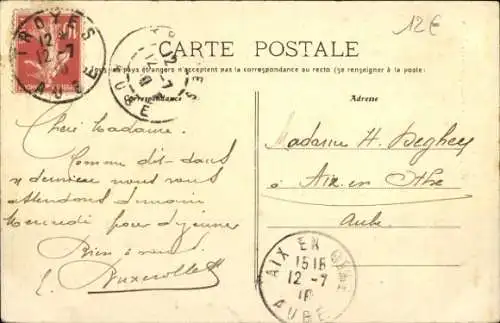 12€
TROYES
12 -7
AUBE
CARTE POSTALE
pays étrangers n'acceptent pas la correspondance au recto (se renseigner à la poste)
Correspondance
Adresse
Chère Madame.
Comme dit dans
dernière nous vous
attendons demain
Mercredi pour déjeuner
Bien à vous.
Madame H.
à Aix en Othe
Aube
AIX EN OTHE
1515
12 -7
10
AUBE